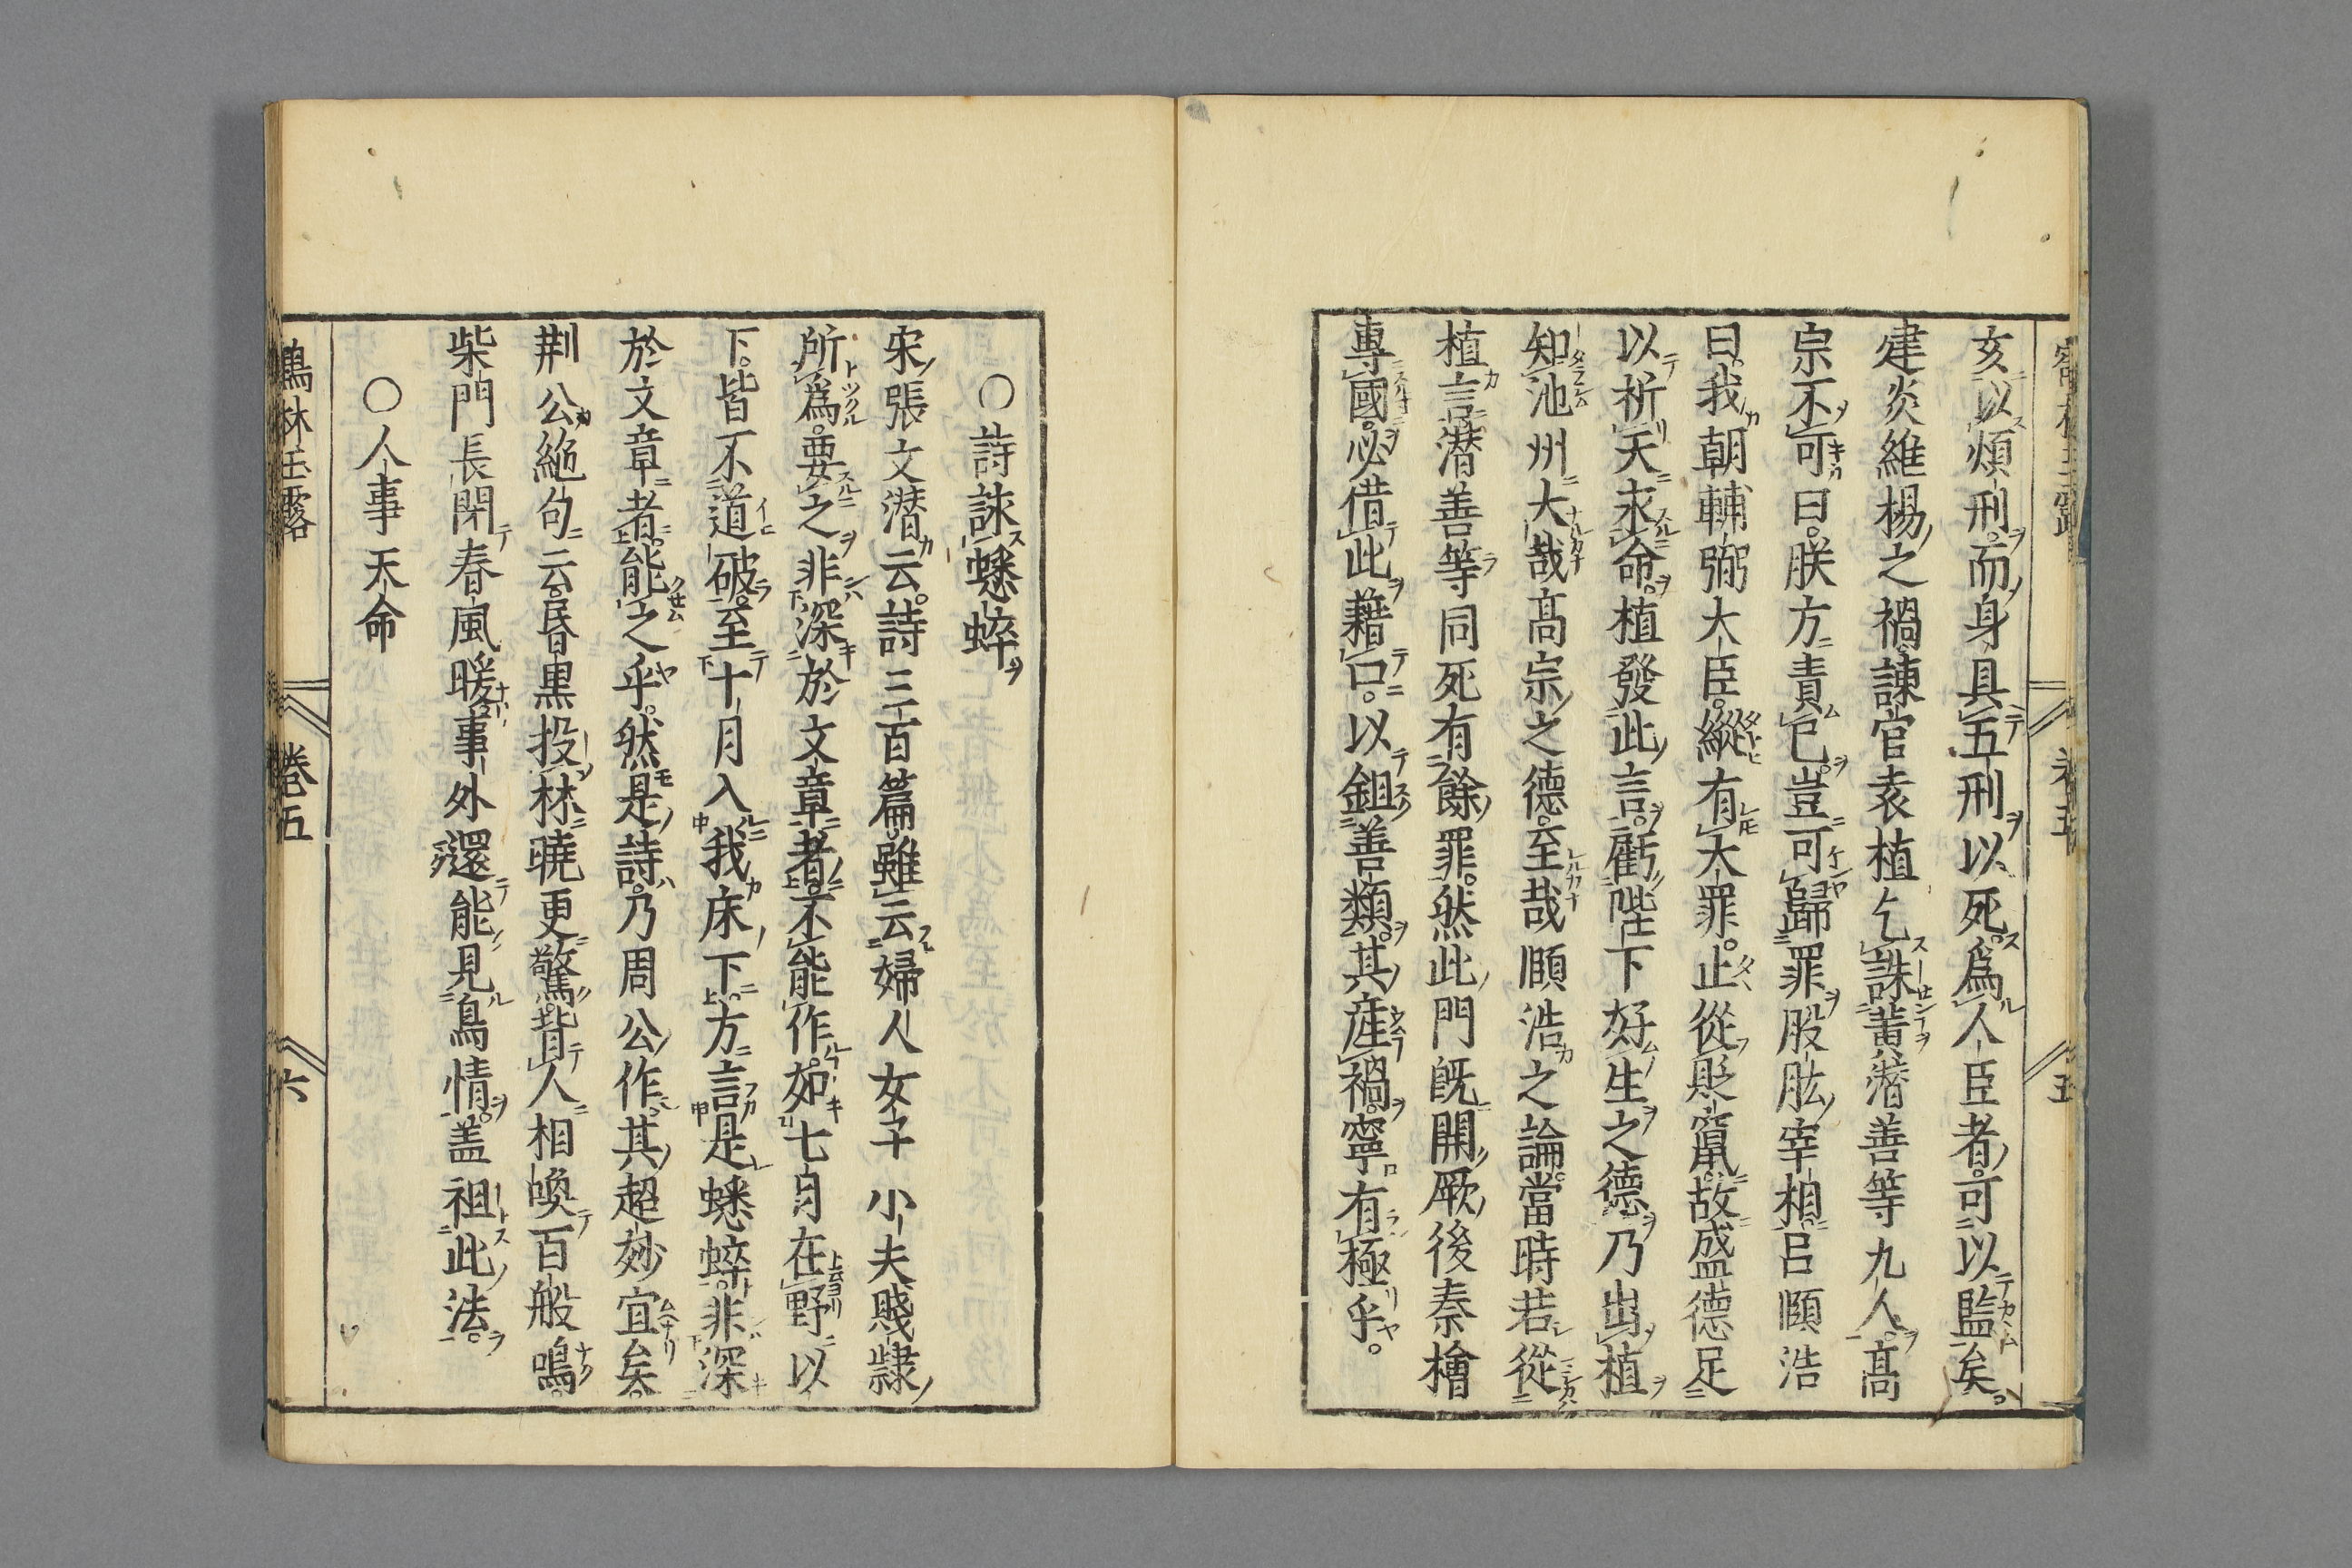 亥以煩刑而身具五刑以死爲人臣者可以監矣
建炎維楊之禍諌官袁植乞誅黄潜善等九人髙
宗不可曰朕方責已豈可歸罪股肱宰相吕頤浩
曰我朝輔弼大臣縱有大罪止從貶竄故盛德足
以祈天永命植發此言虧陛下好生之德乃出植
知池州大哉髙宗之德至哉頤浩之論當時若從
植言潜善等同死有餘罪然此門既開厥後秦檜
專國必借此藉口以鉏善類其産禍寧有極乎
〇詩誅蟋蟀
宋張文潜云詩三百篇雖云婦人女子小夫賤隸
所爲要之非深於文章者不能作如七月在野以
下皆不道破至十月入我床下方言是蟋蟀非深
於文章者能之乎然是詩乃周公作其超妙宜矣
荆公絶句云昏黒投林曉更驚背人相喚百般鳴
柴門長閉春風暖事外還能見鳥情盖祖此法
〇人事天命
鶴林玉露 卷五 六